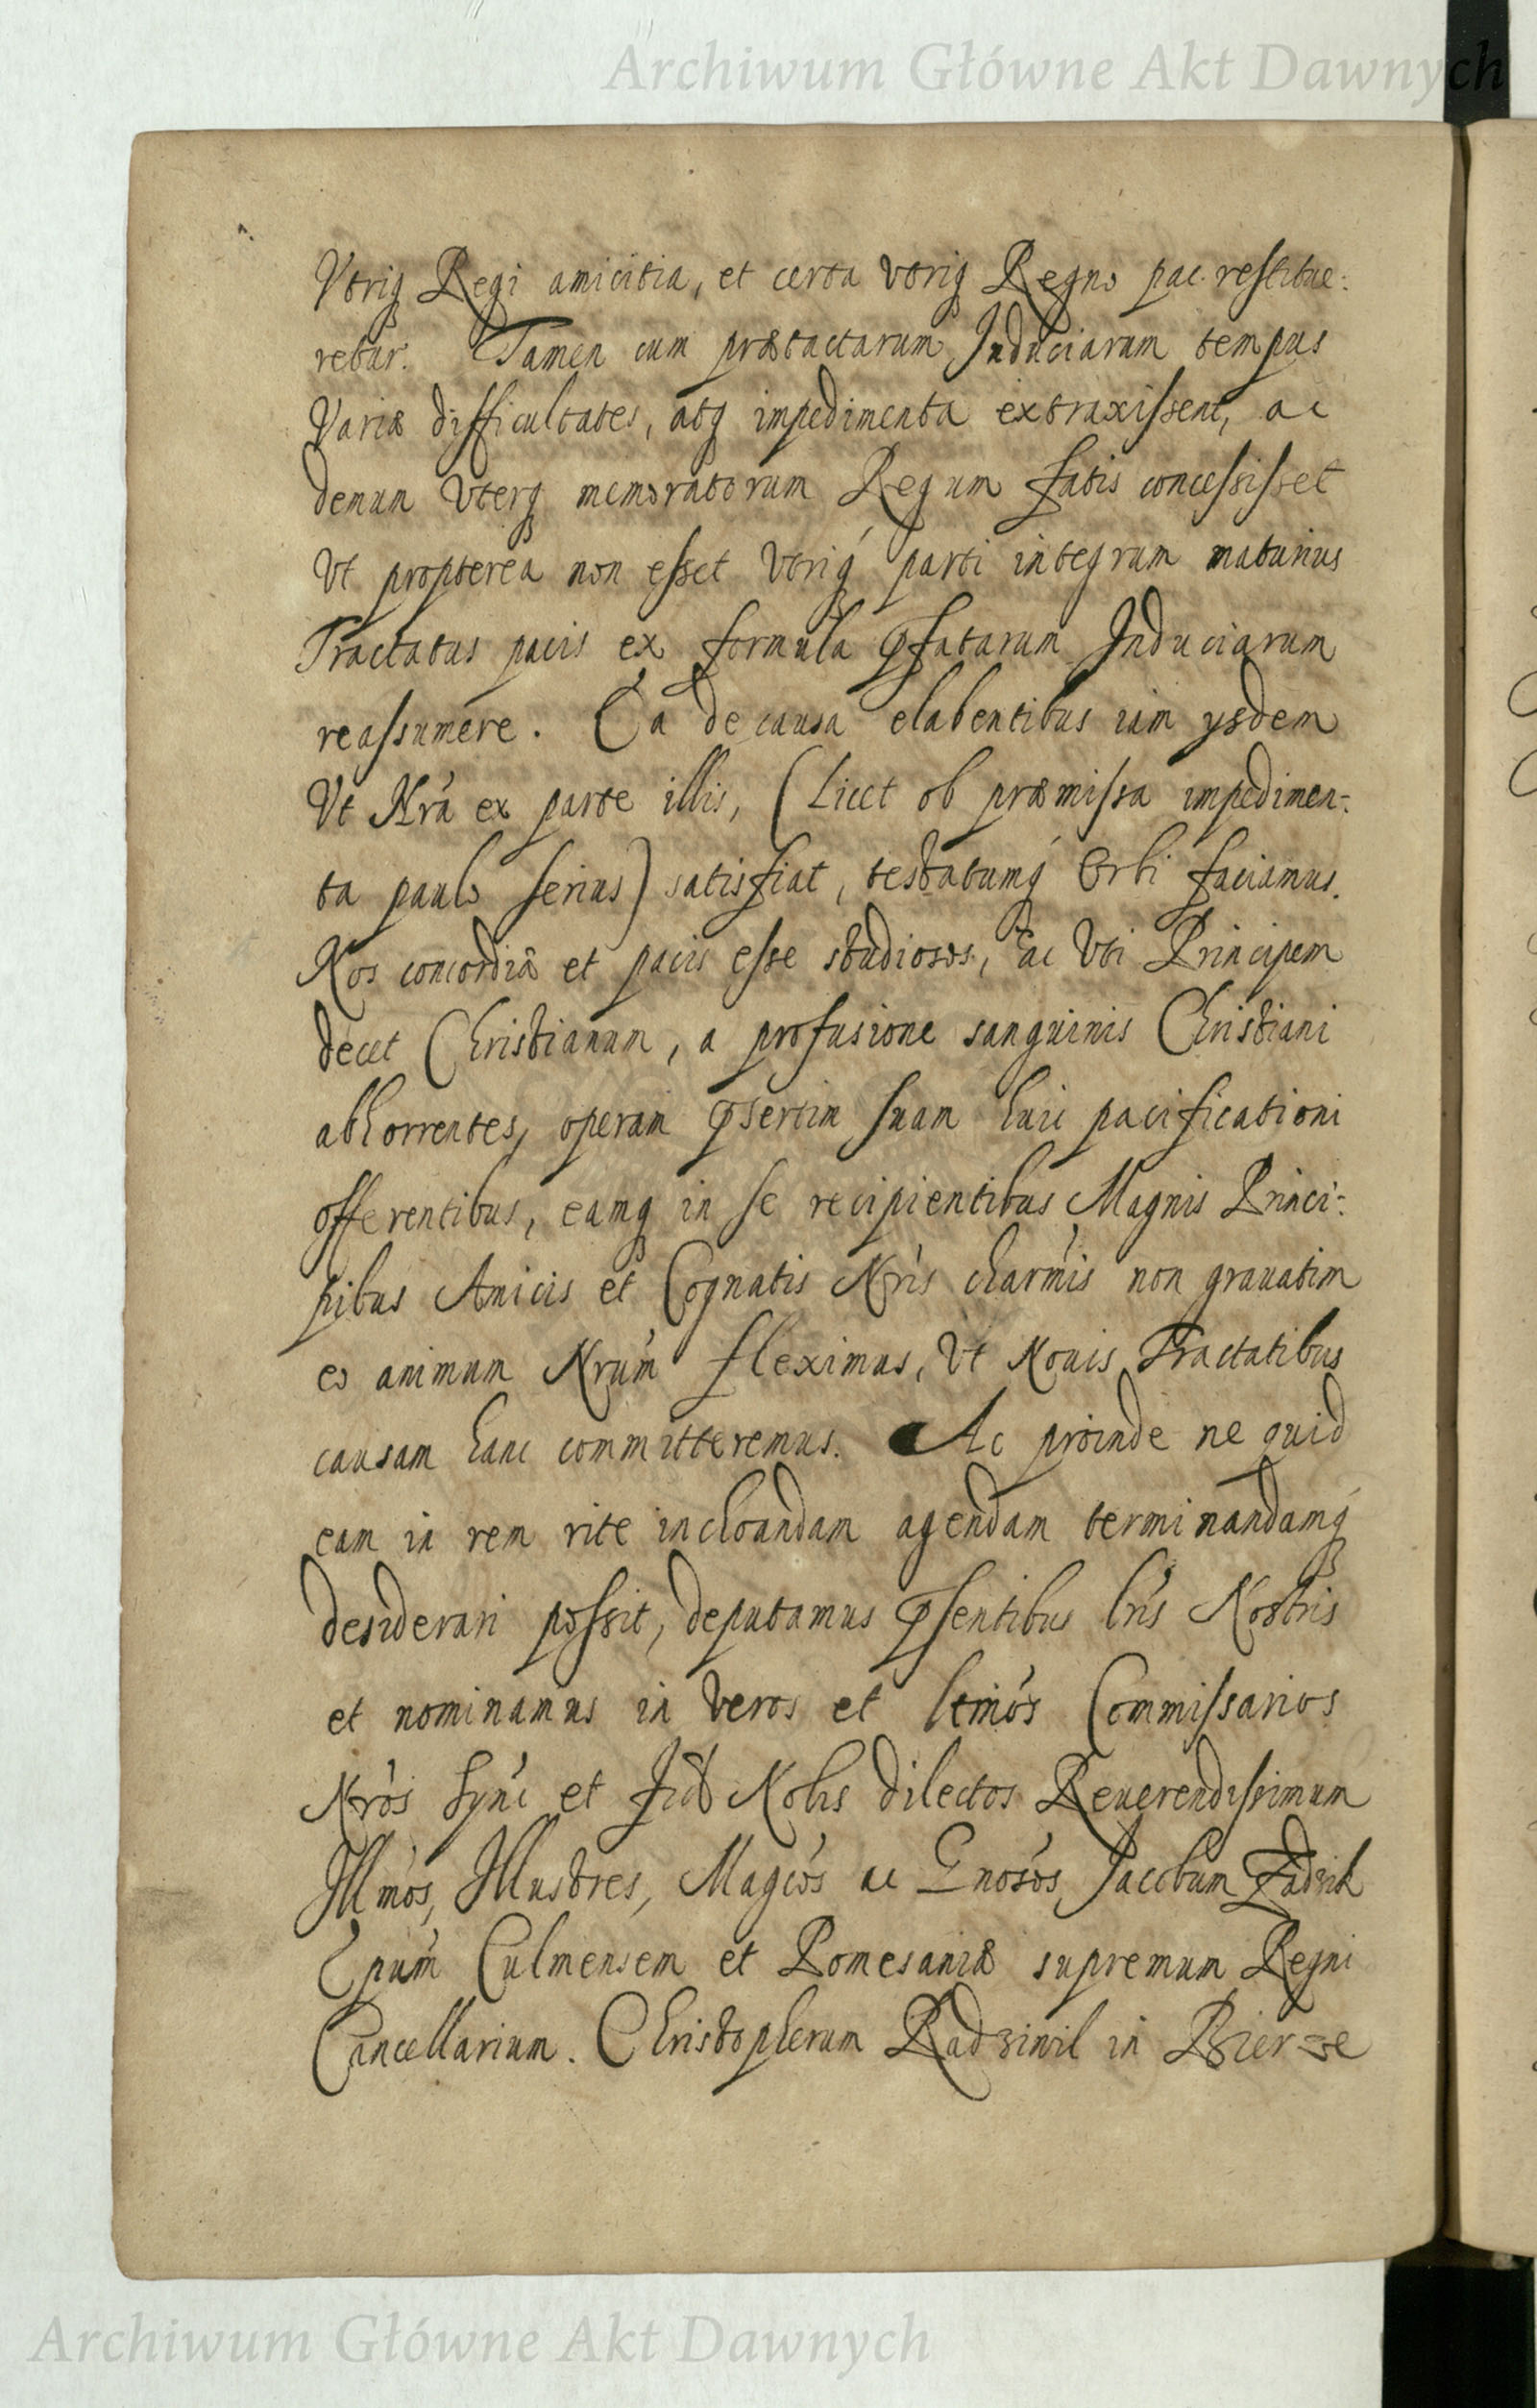 Archiwum Główne Akt Dawnych
Vtriq Regi amicitia, et certa vtriq Regno pac restitue:
retur. Tamen cum prætactarum Induciarum tempus
Variæ difficultates, atq impedimenta extraxissent, ac
demum Vterq memoratorum Regum fatis concessisset
Vt propterea non esset Vtriq parti integrum maturius
Tractatus pacis ex formula pfatarum Induciarum
reassumere. Ea de causa elabentibus iam ysdem
Vt Nrâ ex parte illis, (Licet ob præmissa impedimen-
ta paulo serius) satisfiat, testatumq Orbi faciamus.
Nos concordiæ et pacis esse studiosos, ac Vti Principem
decet Christianum, a profusione sanguinis Christiani
abhorrentes, operam psertim suam huic pacificationi
offerentibus, eamq in se recipientibus Magnis Princi-
pibus Amicis et Cognatis Nris charmis non grauatim
eo animum Nrum fleximus, Vt Nouis Tractatibus
causam hanc committeremus. Ac proinde ne quid
eam in rem rite inchoandam agendam terminandamq
desiderari possit, deputamus psentibus lris Nostris
et nominamus in Veros et ltimos Commissarios
Nros Synć et Fid Nobis dilectos Reuerendissimum
Illmos, Illustres, Magcos ac Gnosos Jacobum Zadzik
Epum Culmensem et Pomesaniæ supremum Regni
Cancellarium. Christopherum Radziwil in Bierze
Archiwum Główne Akt Dawnych